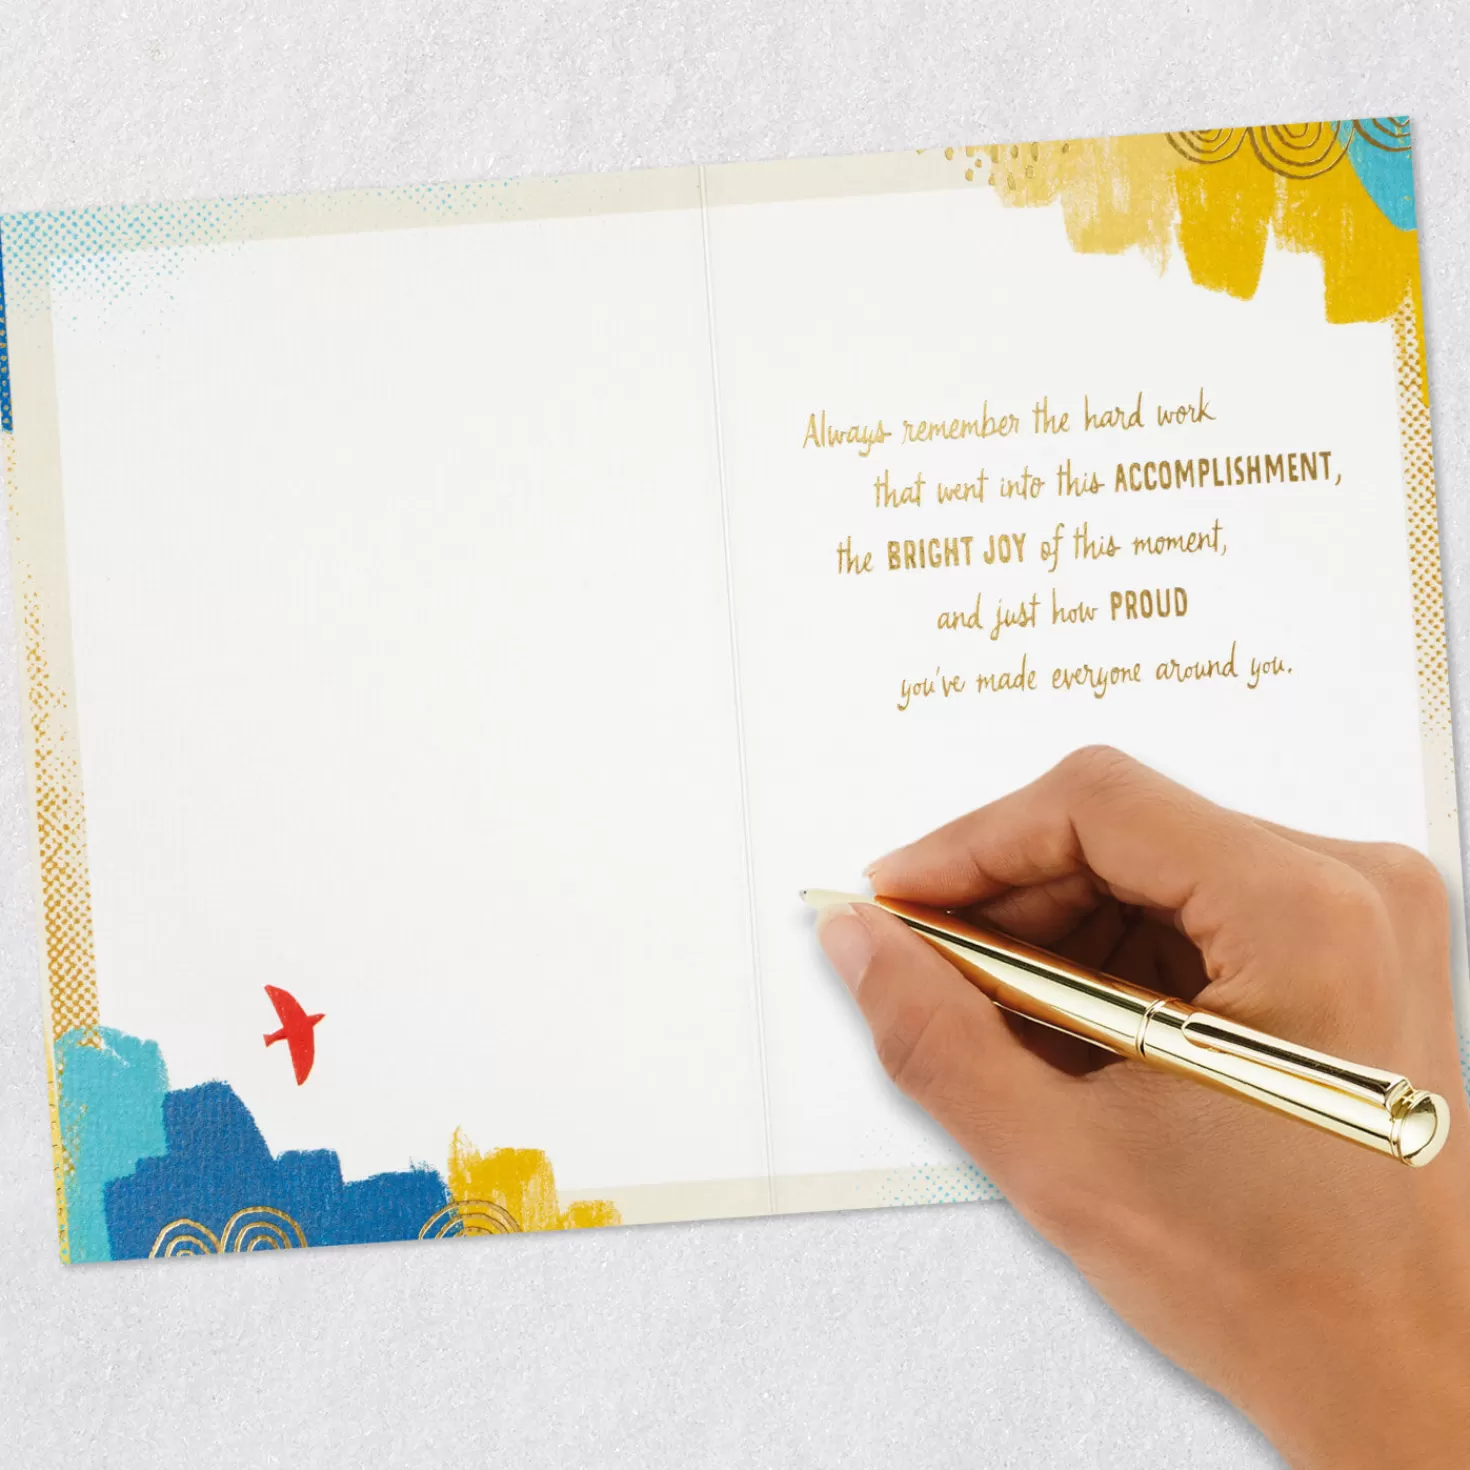 Always remember the hard work
that went into this ACCOMPLISHMENT,
the BRIGHT JOY of this moment,
and just how PROUD
you've made everyone around you.